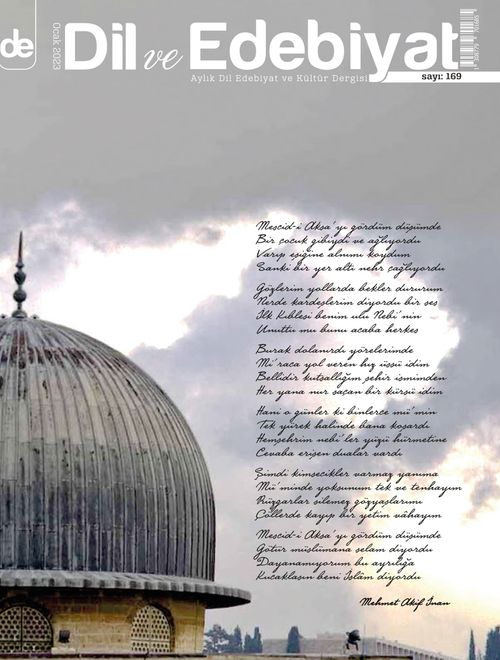 de
Ocak 2023
Dil ve Edebiyat
Aylık Dil Edebiyat ve Kültür Dergisi
sayı: 169
Mescid-i Aksa'yı gördüm düşümde
Bir çocuk gibiydi ve ağlıyordu
Varıp eşiğine alnımı koydum
Sanki bir yer altı nehr çağlıyordu
Gözlerim yollarda bekler dururum
Nerde kardeşlerim diyordu bir ses
İlk Kıblesi benim ulu Nebi'nin
Unuttu mu bunu acaba herkes
Burak dolanırdı yörelerimde
Mi'raca yol veren hız üssü idim
Bellidir kutsallığım şehir ismimden
Her yana nur saçan bir kürsü idim
Hani o günler ki binlerce mü'min
Tek yürek halinde bana koşardı
Hemşehrim nebi'ler yüzü hürmetine
Cevaba erişen dualar vardı
Şimdi kimsecikler varmaz yanıma
Mü'minde yoksunum tek ve tenhayım
Rüzgarlar silemez gözyaşlarımı
Çöllerde kayıp bir yetim vâhayım
Mescid-i Aksa'yı gördüm düşümde
Götür müslümana selam diyordu
Dayanamıyorum bu ayrılığa
Kucaklasın beni İslâm diyordu
Mehmet Akif İnan